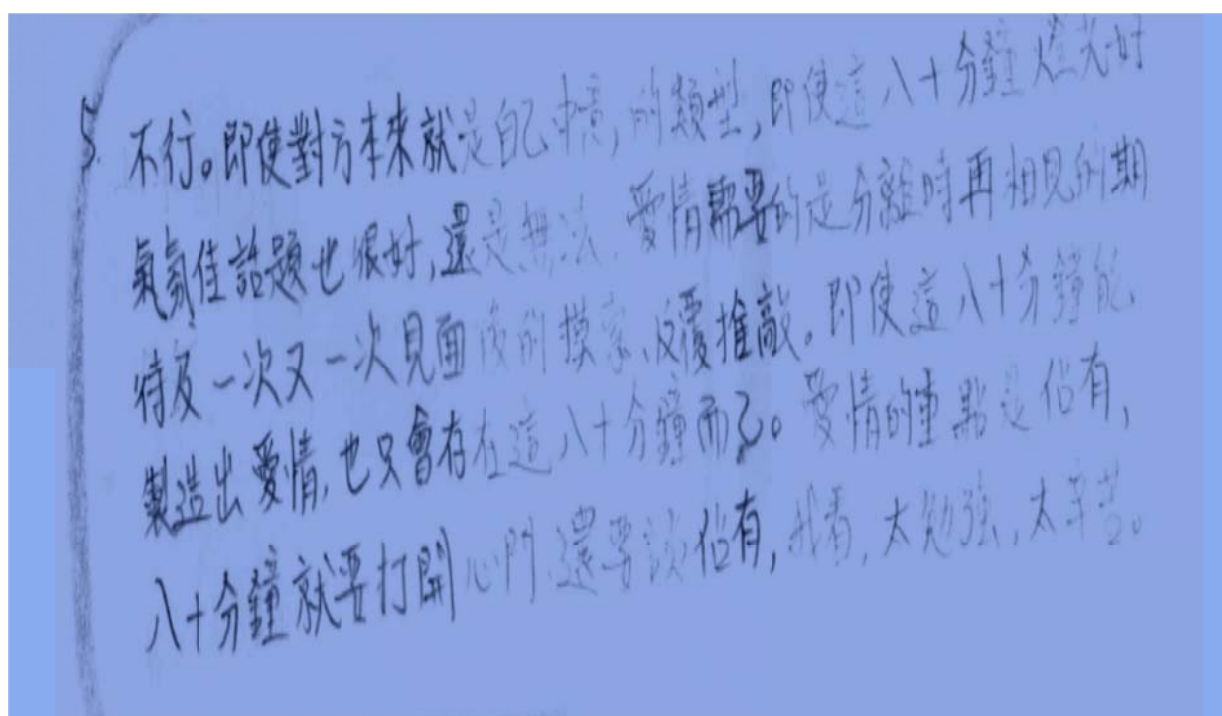 5. 不行。即使對方本來就是自己中意的類型,即使這八十分鐘燈光好
氣氛佳話題也很好,還是無法。愛情需要的是分離時再相見的期
待及一次又一次見面後的摸索、反覆推敲。即使這八十分鐘能
製造出愛情,也只會存在這八十分鐘而已。愛情的重點是佔有,
八十分鐘就要打開心門還要談佔有,我看,太勉強,太辛苦。